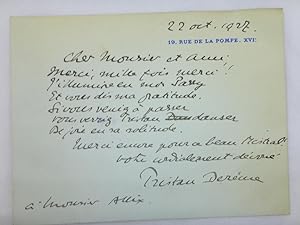 22 oct. 1927.
19, RUE DE LA POMPE. XVIE
Cher Monsieur et Ami,
Merci, mille fois merci !
J'illumine en mon Passy
Et vous dis ma gratitude.
Si vous veniez à passer
Vous verriez Tristan danser
De joie en sa solitude.
Merci encore pour ce beau
votre cordialement dévoué
Tristan Derème
à Monsieur Allix